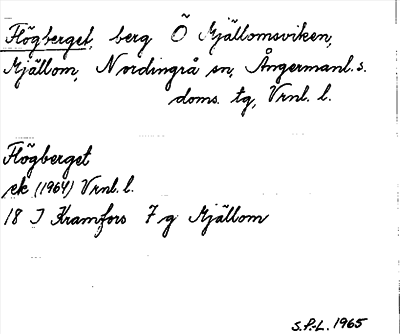 Högberget, berg Ö Mjällomsviken,
Mjällom, Nordingrå sn, Ångermanl. s.
doms. tg, Vrnl. l.
Högberget
ek (1964) Vrnl. l.
18 J Kramfors 7 g Mjällom
S.P.-L. 1965